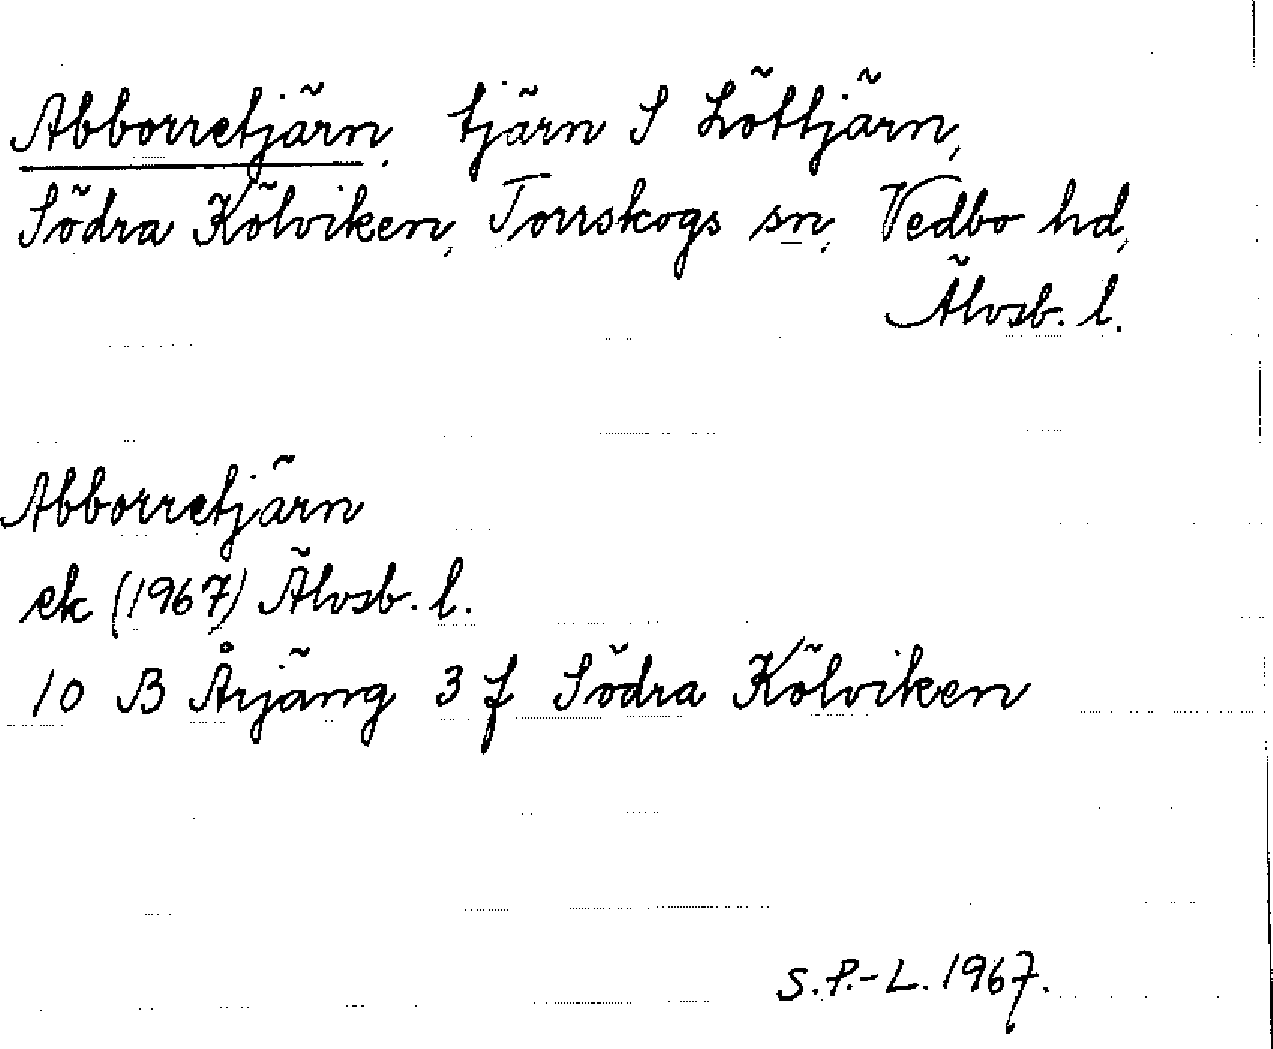 Abborretjärn, tjärn S Löttjärn,
Södra Kölviken, Torrskogs sn, Vedbo hd,
Älvsb. l.
Abborretjärn
ek (1967) Älvsb. l.
10 B Årjäng 3 f Södra Kölviken
S.P.-L. 1967.